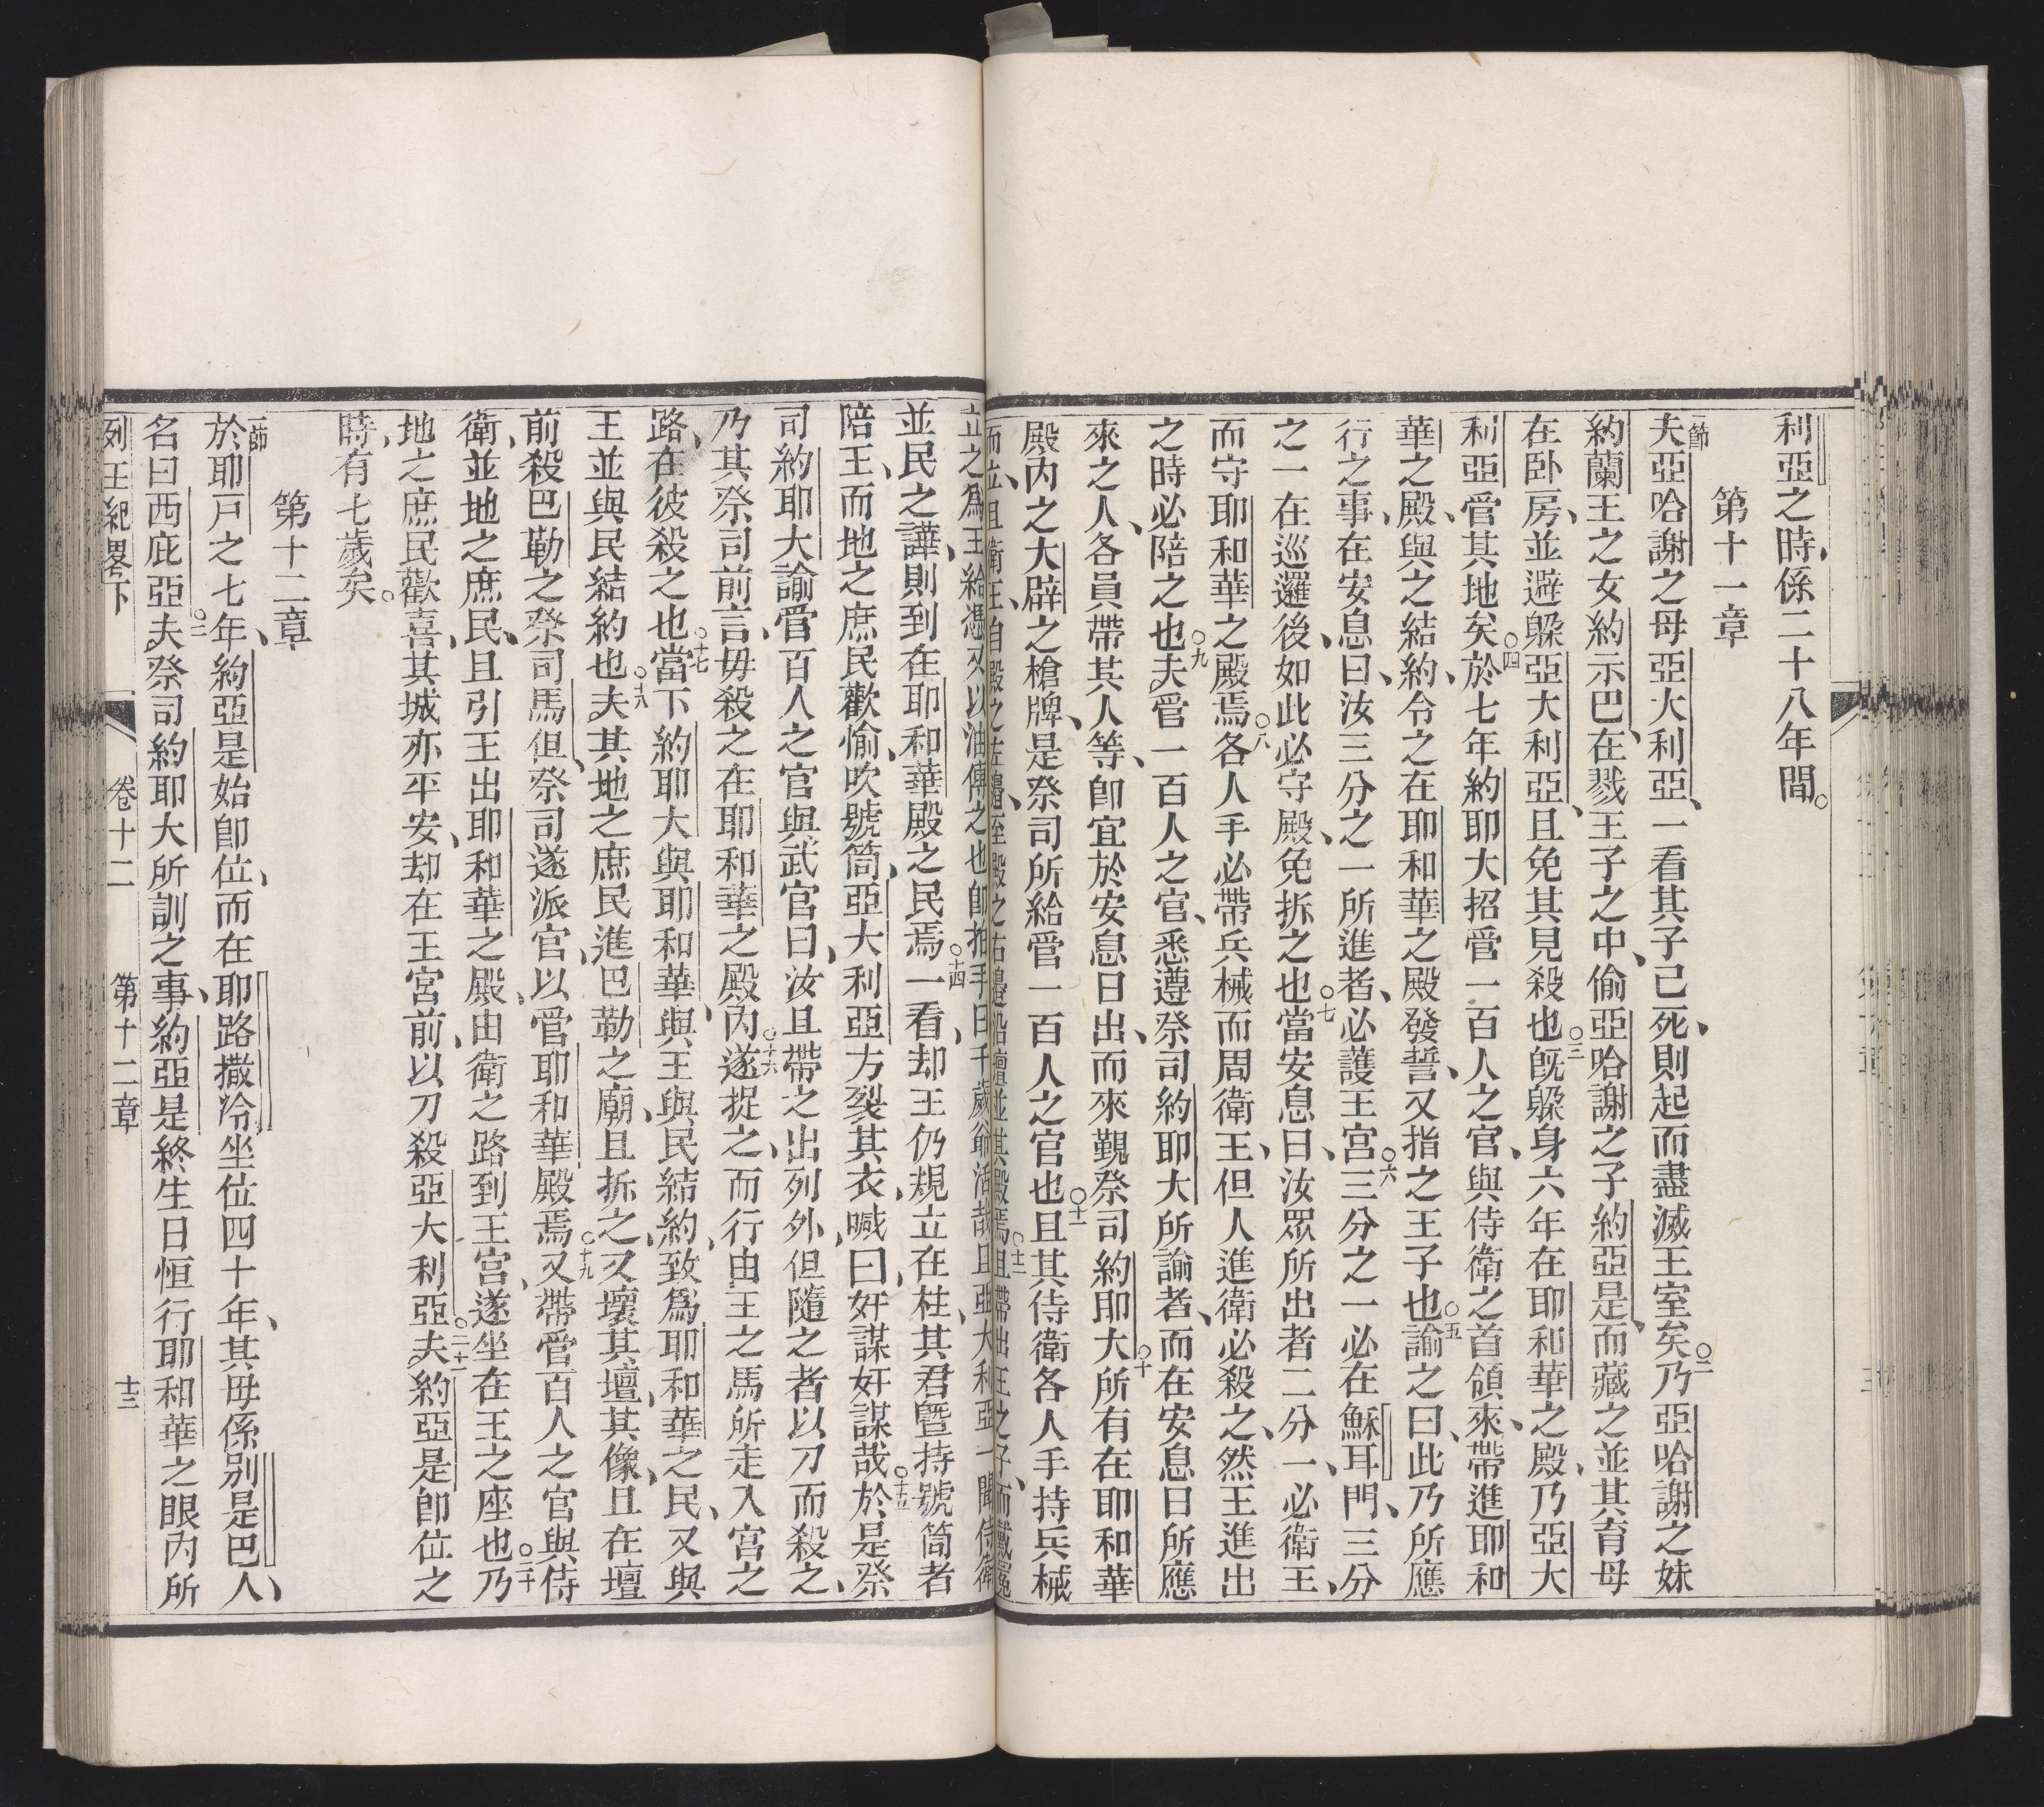 利亞之時、係二十八年間。
第十一章
一節夫亞哈謝之母亞大利亞、一看其子已死、則起而盡滅王室矣。○二乃亞哈謝之妹
約蘭王之女約示巴、在戮王子之中、偷亞哈謝之子約亞是、而藏之並其育母
在卧房、並避躲亞大利亞、且免其見殺也。○三旣躲身六年在耶和華之殿、乃亞大
利亞管其地矣。○四於七年約耶大招管一百人之官、與侍衛之首領來、帶進耶和
華之殿、與之結約、令之在耶和華之殿發誓、又指之王子也。○五諭之曰、此乃所應
行之事、在安息日、汝三分之一所進者、必護王宮。○六三分之一必在穌耳門、三分
之一在巡邏後、如此必守殿、免拆之也。○七當安息日、汝眾所出者二分一、必衛王、
而守耶和華之殿焉。○八各人手必帶兵械而周衛王、但人進衛必殺之、然王進出
之時必陪之也。○九夫管一百人之官、悉遵祭司約耶大所諭者、而在安息日所應
來之人、各員帶其人等、卽宜於安息日出、而來覲祭司約耶大。○十所有在耶和華
殿內之大辟之槍牌、是祭司所給管一百人之官也。○十一且其侍衛各人手持兵械
而立、且衛王、自殿之左邊、至殿之右邊、沿壇並其殿焉。○十二且帶出王之子、而戴冕
立之爲王、給憑、又以油傅之也、卽拍手曰、千歲爺活哉、且亞大利亞一聞侍衛
並民之譁、則到在耶和華殿之民焉。○十四一看、却王仍規立在柱、其君暨持號筒者
陪王、而地之庶民歡愉、吹號筒、亞大利亞方裂其衣、喊曰、奸謀奸謀哉。○十五於是祭
司約耶大諭管百人之官與武官曰、汝且帶之出列外、但隨之者以刀而殺之、
乃其祭司前言、毋殺之在耶和華之殿內。○十六遂捉之、而行由王之馬所走入宮之
路、在彼殺之也。○十七當下約耶大與耶和華、與王與民結約、致爲耶和華之民、又與
王並與民結約也。○十八夫其地之庶民進巴勒之廟、且拆之、又壞其壇、其像、且在壇
前殺巴勒之祭司馬但、祭司遂派官、以管耶和華殿焉。○十九又帶管百人之官與侍
衛、並地之庶民、且引王出耶和華之殿、由衛之路到王宮、遂坐在王之座也。○二十乃
地之庶民歡喜、其城亦平安、却在王宮前、以刀殺亞大利亞。○二十一夫約亞是卽位之
時、有七歲矣。
第十二章
一節於耶戸之七年、約亞是始卽位、而在耶路撒冷坐位四十年、其母係别是巴人、
名曰西庇亞。○二夫祭司約耶大所訓之事、約亞是終生日恒行耶和華之眼內所
列王紀畧下 卷十二 第十二章 十三